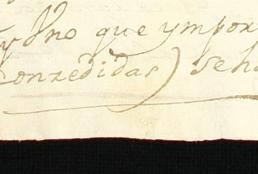 y no que ympor
Conzedidas) seha